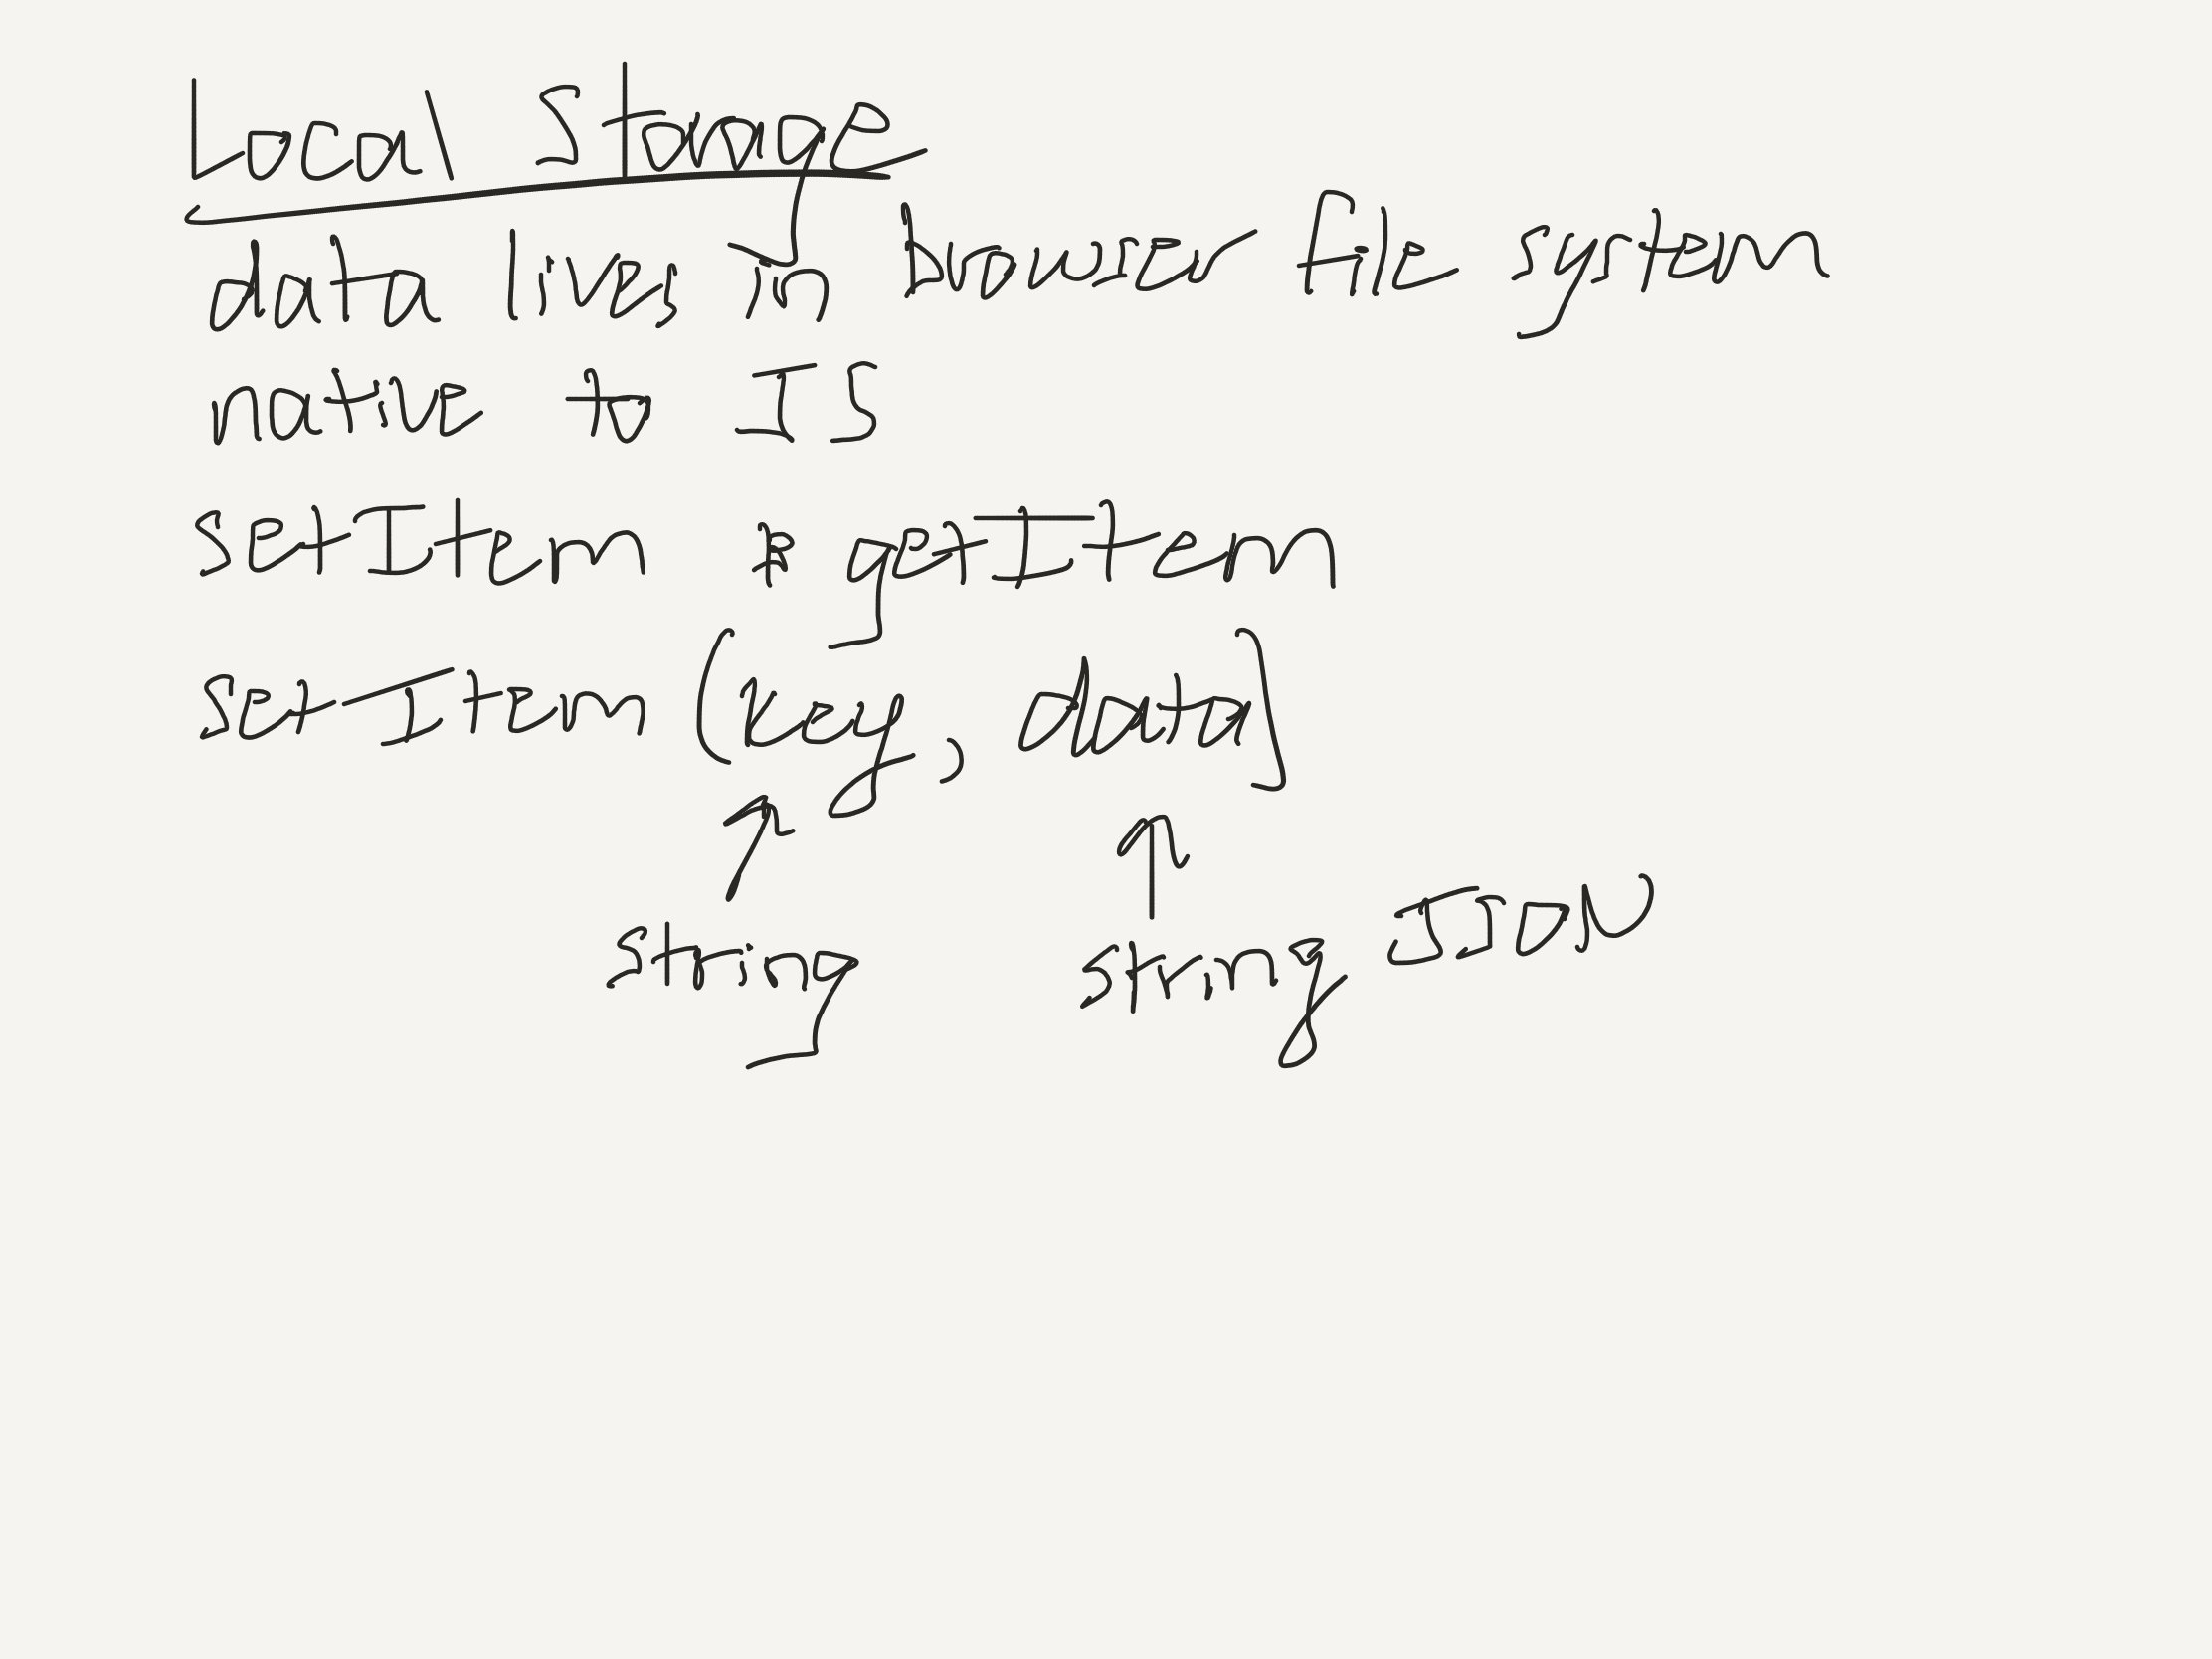 Local Storage
data lives in browser file system
native to JS
setItem & getItem
setItem (key, data)
string string JSON